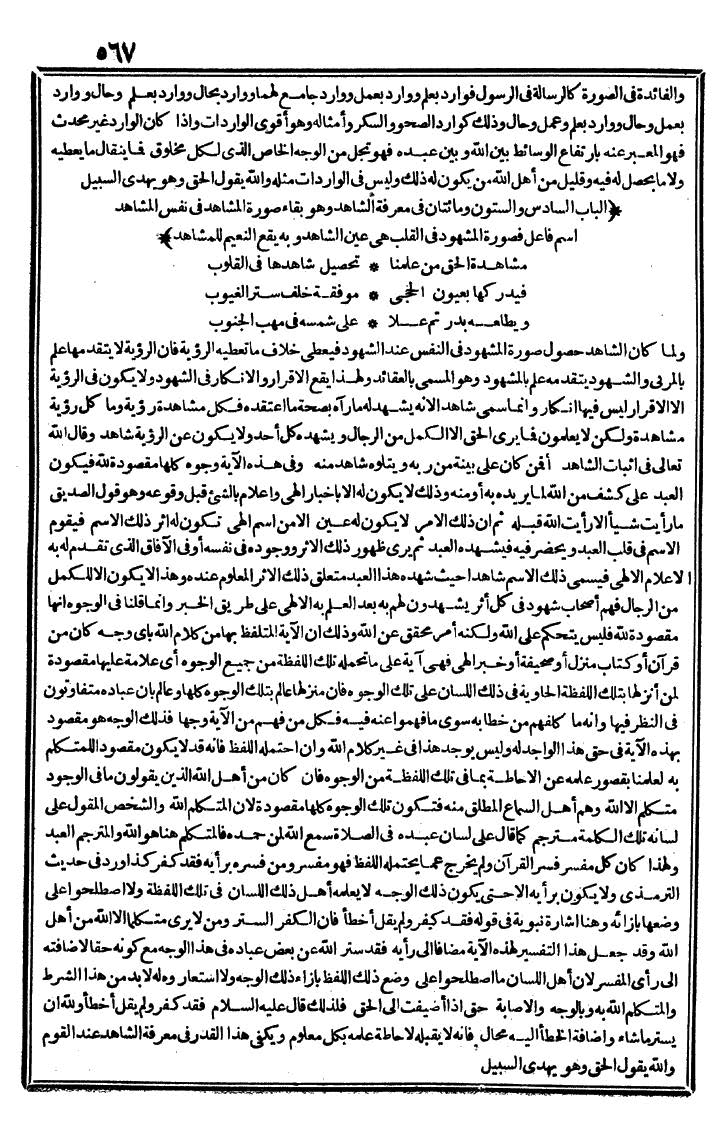 ٥٦٧
والفائدة فى الصورة كالرسالة فى الرسول فوارد بعلم ووارد بعمل ووارد جامع لهما ووارد بحال ووارد بعلم وحال ووارد
بعمل وحال ووارد بعلم وعمل وحال وذلك كوارد الصحو والسكر وأمثاله وهو أقوى الواردات واذا كان الوارد غير محدث
فهو المعبر عنه بارتفاع الوسائط بين الله وبين عبده فهو تجل من الوجه الخاص الذى لكل مخلوق فما ينقال ما يعطيه
ولا ما يحصل له فيه وقليل من أهل الله من يكون له ذلك وليس فى الواردات مثله والله يقول الحق وهو يهدى السبيل
﴿الباب السادس والستون ومائتان فى معرفة الشاهد وهو بقاء صورة المشاهد فى نفس المشاهد
اسم فاعل فصورة المشهود فى القلب هى عين الشاهد وبه يقع النعيم للمشاهد﴾
مشاهدة الحق من علمنا * تحصيل شاهدها فى القلوب
فيدركها بعيون الحجى * موفقة خلف ستر الغيوب
ويطلعه بدر تم علا * على شمسه فى مهب الجنوب
ولما كان الشاهد حصول صورة المشهود فى النفس عند الشهود فيعطى خلاف ما تعطيه الرؤية فان الرؤية لا يتقدمها علم
بالمرئى والشهود يتقدمه علم بالمشهود وهو المسمى بالعقائد ولهذا يقع الاقرار والانكار فى الشهود ولا يكون فى الرؤية
الا الاقرار ليس فيها انكار وانما سمى شاهدا لانه يشهد له ما رآه بصحة ما اعتقده فكل مشاهدة رؤية وما كل رؤية
مشاهدة ولكن لا يعلمون فما يرى الحق الا الكمل من الرجال ويشهده كل أحد ولا يكون عن الرؤية شاهد وقال الله
تعالى فى اثبات الشاهد أفمن كان على بينة من ربه ويتلوه شاهد منه وفى هذه الآية وجوه كلها مقصودة لله فيكون
العبد على كشف من الله لما يريده به أو منه وذلك لا يكون له الا باخبار الهى واعلام بالشئ قبل وقوعه وهو قول الصديق
ما رأيت شيأ الا رأيت الله قبله ثم ان ذلك الامر لا يكون له عين الا من اسم الهى تكون له اثر ذلك الاسم فيقوم
الاسم فى قلب العبد ويحضر فيه فيشهده العبد ثم يرى ظهور ذلك الاثر ووجوده فى نفسه أو فى الآفاق الذى تقدم له به
الاعلام الالهى فيسمى ذلك الاسم شاهدا حيث شهده هذا العبد متعلق ذلك الاثر المعلوم عنده وهذا لا يكون الا للكمل
من الرجال فهم أصحاب شهود فى كل أثر يشهدون لهم به بعد العلم به الالهى على طريق الخبر وانما قلنا فى الوجوه انها
مقصودة لله فليس يتحكم على الله ولكنه أمر محقق عن الله وذلك ان الآية المتلفظ بها من كلام الله باى وجه كان من
قرآن أو كتاب منزل أو صحيفة أو خبر الهى فهى آية على ما تحمله تلك اللفظة من جميع الوجوه أى علامة عليها مقصودة
لمن أنزلها بتلك اللفظة الحاوية فى ذلك اللسان على تلك الوجوه فان منزلها عالم بتلك الوجوه كلها وعالم بان عباده متفاوتون
فى النظر فيها وانه ما كلفهم من خطابه سوى ما فهموا عنه فيه فكل من فهم من الآية وجها فذلك الوجه هو مقصود
بهذه الآية فى حق هذا الواجد له وليس يوجد هذا فى غير كلام الله وان احتمله اللفظ فانه قد لا يكون مقصود اللمتكلم
به لعلمنا بقصور علمه عن الاحاطة بما فى تلك اللفظة من الوجوه فان كان من أهل الله الذين يقولون ما فى الوجود
متكلم الا الله وهم أهل السماع المطلق منه فتكون تلك الوجوه كلها مقصودة لان المتكلم الله والشخص المقول على
لسانه تلك الكلمة مترجم كما قال على لسان عبده فى الصلاة سمع الله لمن حمده فالمتكلم هنا هو الله والمترجم العبد
ولهذا كان كل مفسر فسر القرآن ولم يخرج عما يحتمله اللفظ فهو مفسر ومن فسره برأيه فقد كفر كذا ورد فى حديث
الترمذى ولا يكون برأيه الا حتى يكون ذلك الوجه لا يعلمه أهل ذلك اللسان فى تلك اللفظة ولا اصطلحوا على
وضعها بازائه وهنا اشارة نبوية فى قوله فقد كفر ولم يقل أخطأ فان الكفر الستر ومن لا يرى متكلما الا الله من أهل
الله وقد جعل هذا التفسير لهذه الآية مضافا الى رأيه فقد ستر الله عن بعض عباده فى هذا الوجه مع كونه حقا لاضافته
الى رأى المفسر لان أهل اللسان ما اصطلحوا على وضع ذلك اللفظ بازاء ذلك الوجه ولا استعاروه له لا بد من هذا الشرط
والمتكلم الله به وبالوجه والاصابة حق اذا أضيفت الى الحق فلذلك قال عليه السلام فقد كفر ولم يقل أخطأ ولله ان
يستر ما شاء واضافة الخطأ اليه محال فانه لا يقبله لاحاطة علمه بكل معلوم ويكفى هذا القدر فى معرفة الشاهد عند القوم
والله يقول الحق وهو يهدى السبيل